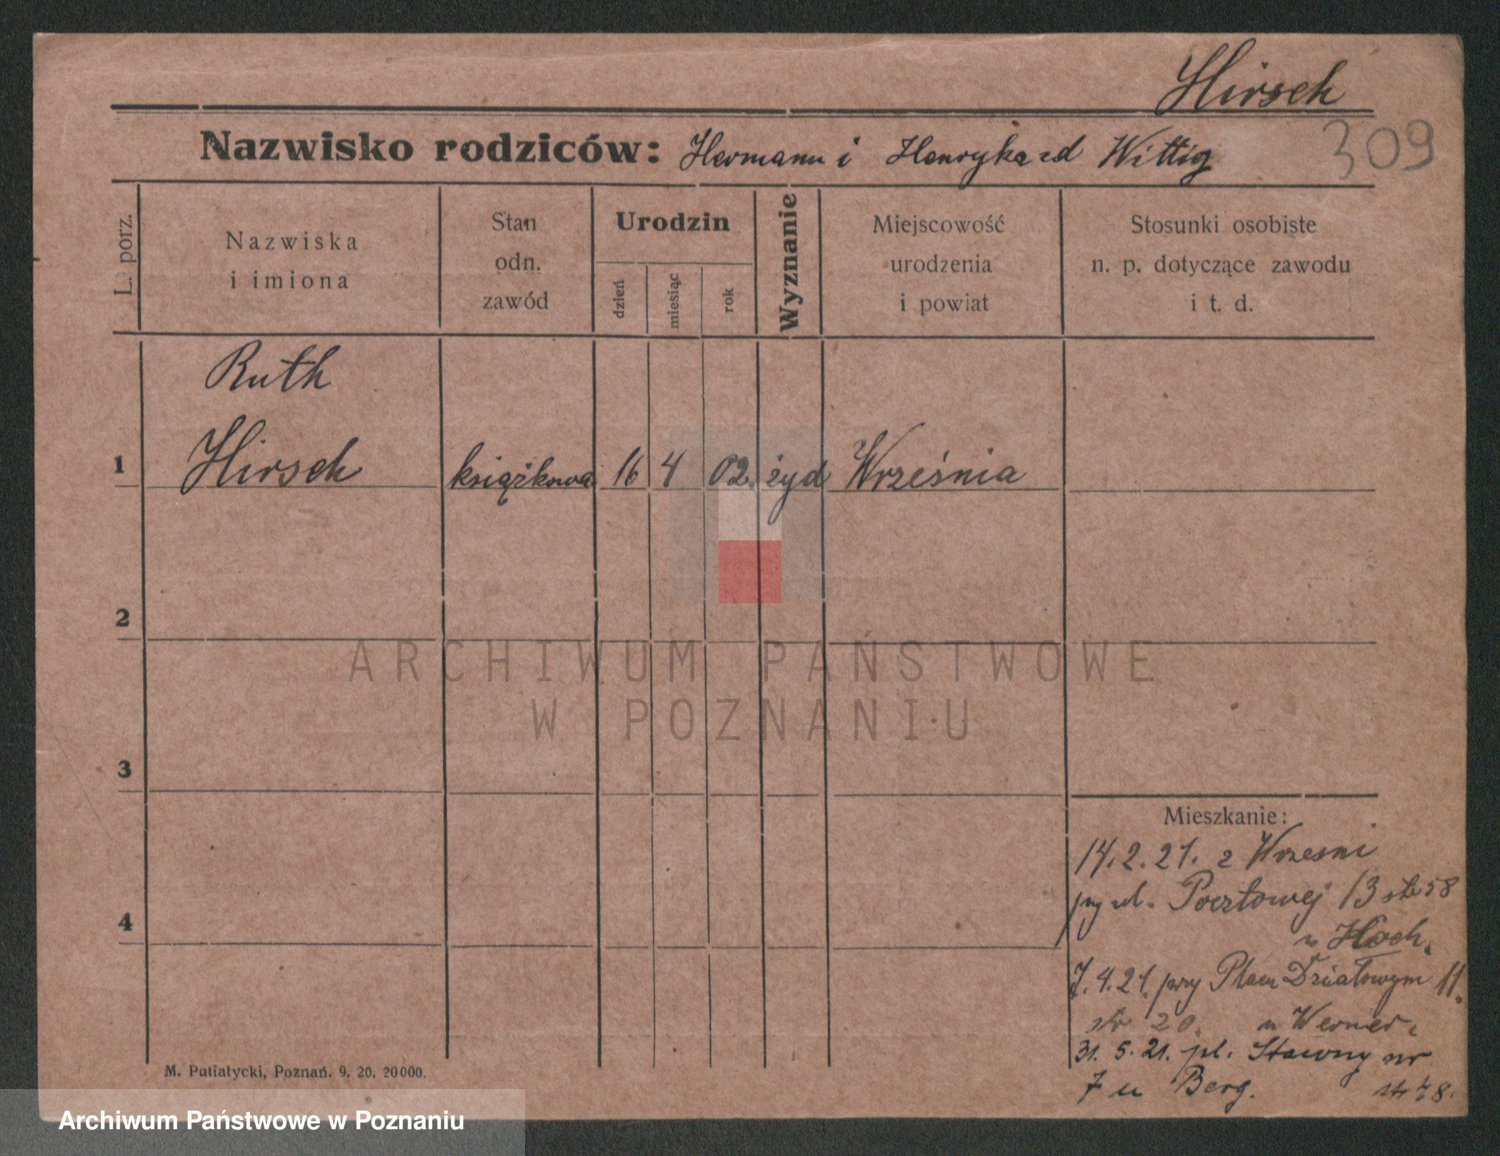 Hirsch
309
Nazwisko rodziców: Hermann i Henryka zd Wittig
L. porz.
Nazwiska
i imiona
Stan
odn.
zawód
Urodzin
dzień
miesiąc
rok
Wyznanie
Miejscowość
urodzenia
i powiat
Stosunki osobiste
n. p. dotyczące zawodu
i t. d.
Ruth
1 Hirsch książkowa 16 4 02. żyd Września
2
ARCHIWUM PAŃSTWOWE
W POZNANIU
3
Mieszkanie:
14.2.21. z Wrzesni
przy ul. Pocztowej 13 str 58
u Hoch.
7.4.21. przy Placu Działowym 11.
str 20. u Werner.
31.5.21. pl. Stawny nr
7 u Berg.
4
M. Putiatycki, Poznań. 9. 20. 20000.
Archiwum Państwowe w Poznaniu